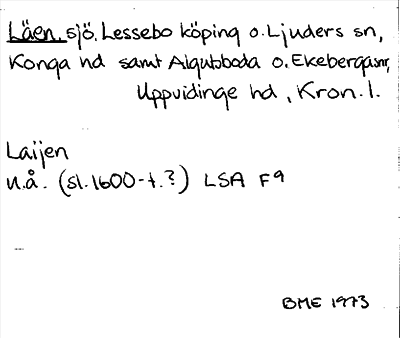 Läen, sjö. Lessebo köping o. Ljuders sn,
Konga hd samt Algutsboda o. Ekeberga snr,
Uppvidinge hd, Kron. l.
Laijen
u.å. (sl. 1600-t.?) LSA F9
BME 1973